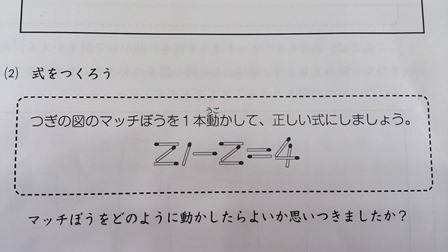 (2) 式をつくろう
つぎの図のマッチぼうを1本動かして、正しい式にしましょう。
うご
Z1-Z=4
マッチぼうをどのように動かしたらよいか思いつきましたか?